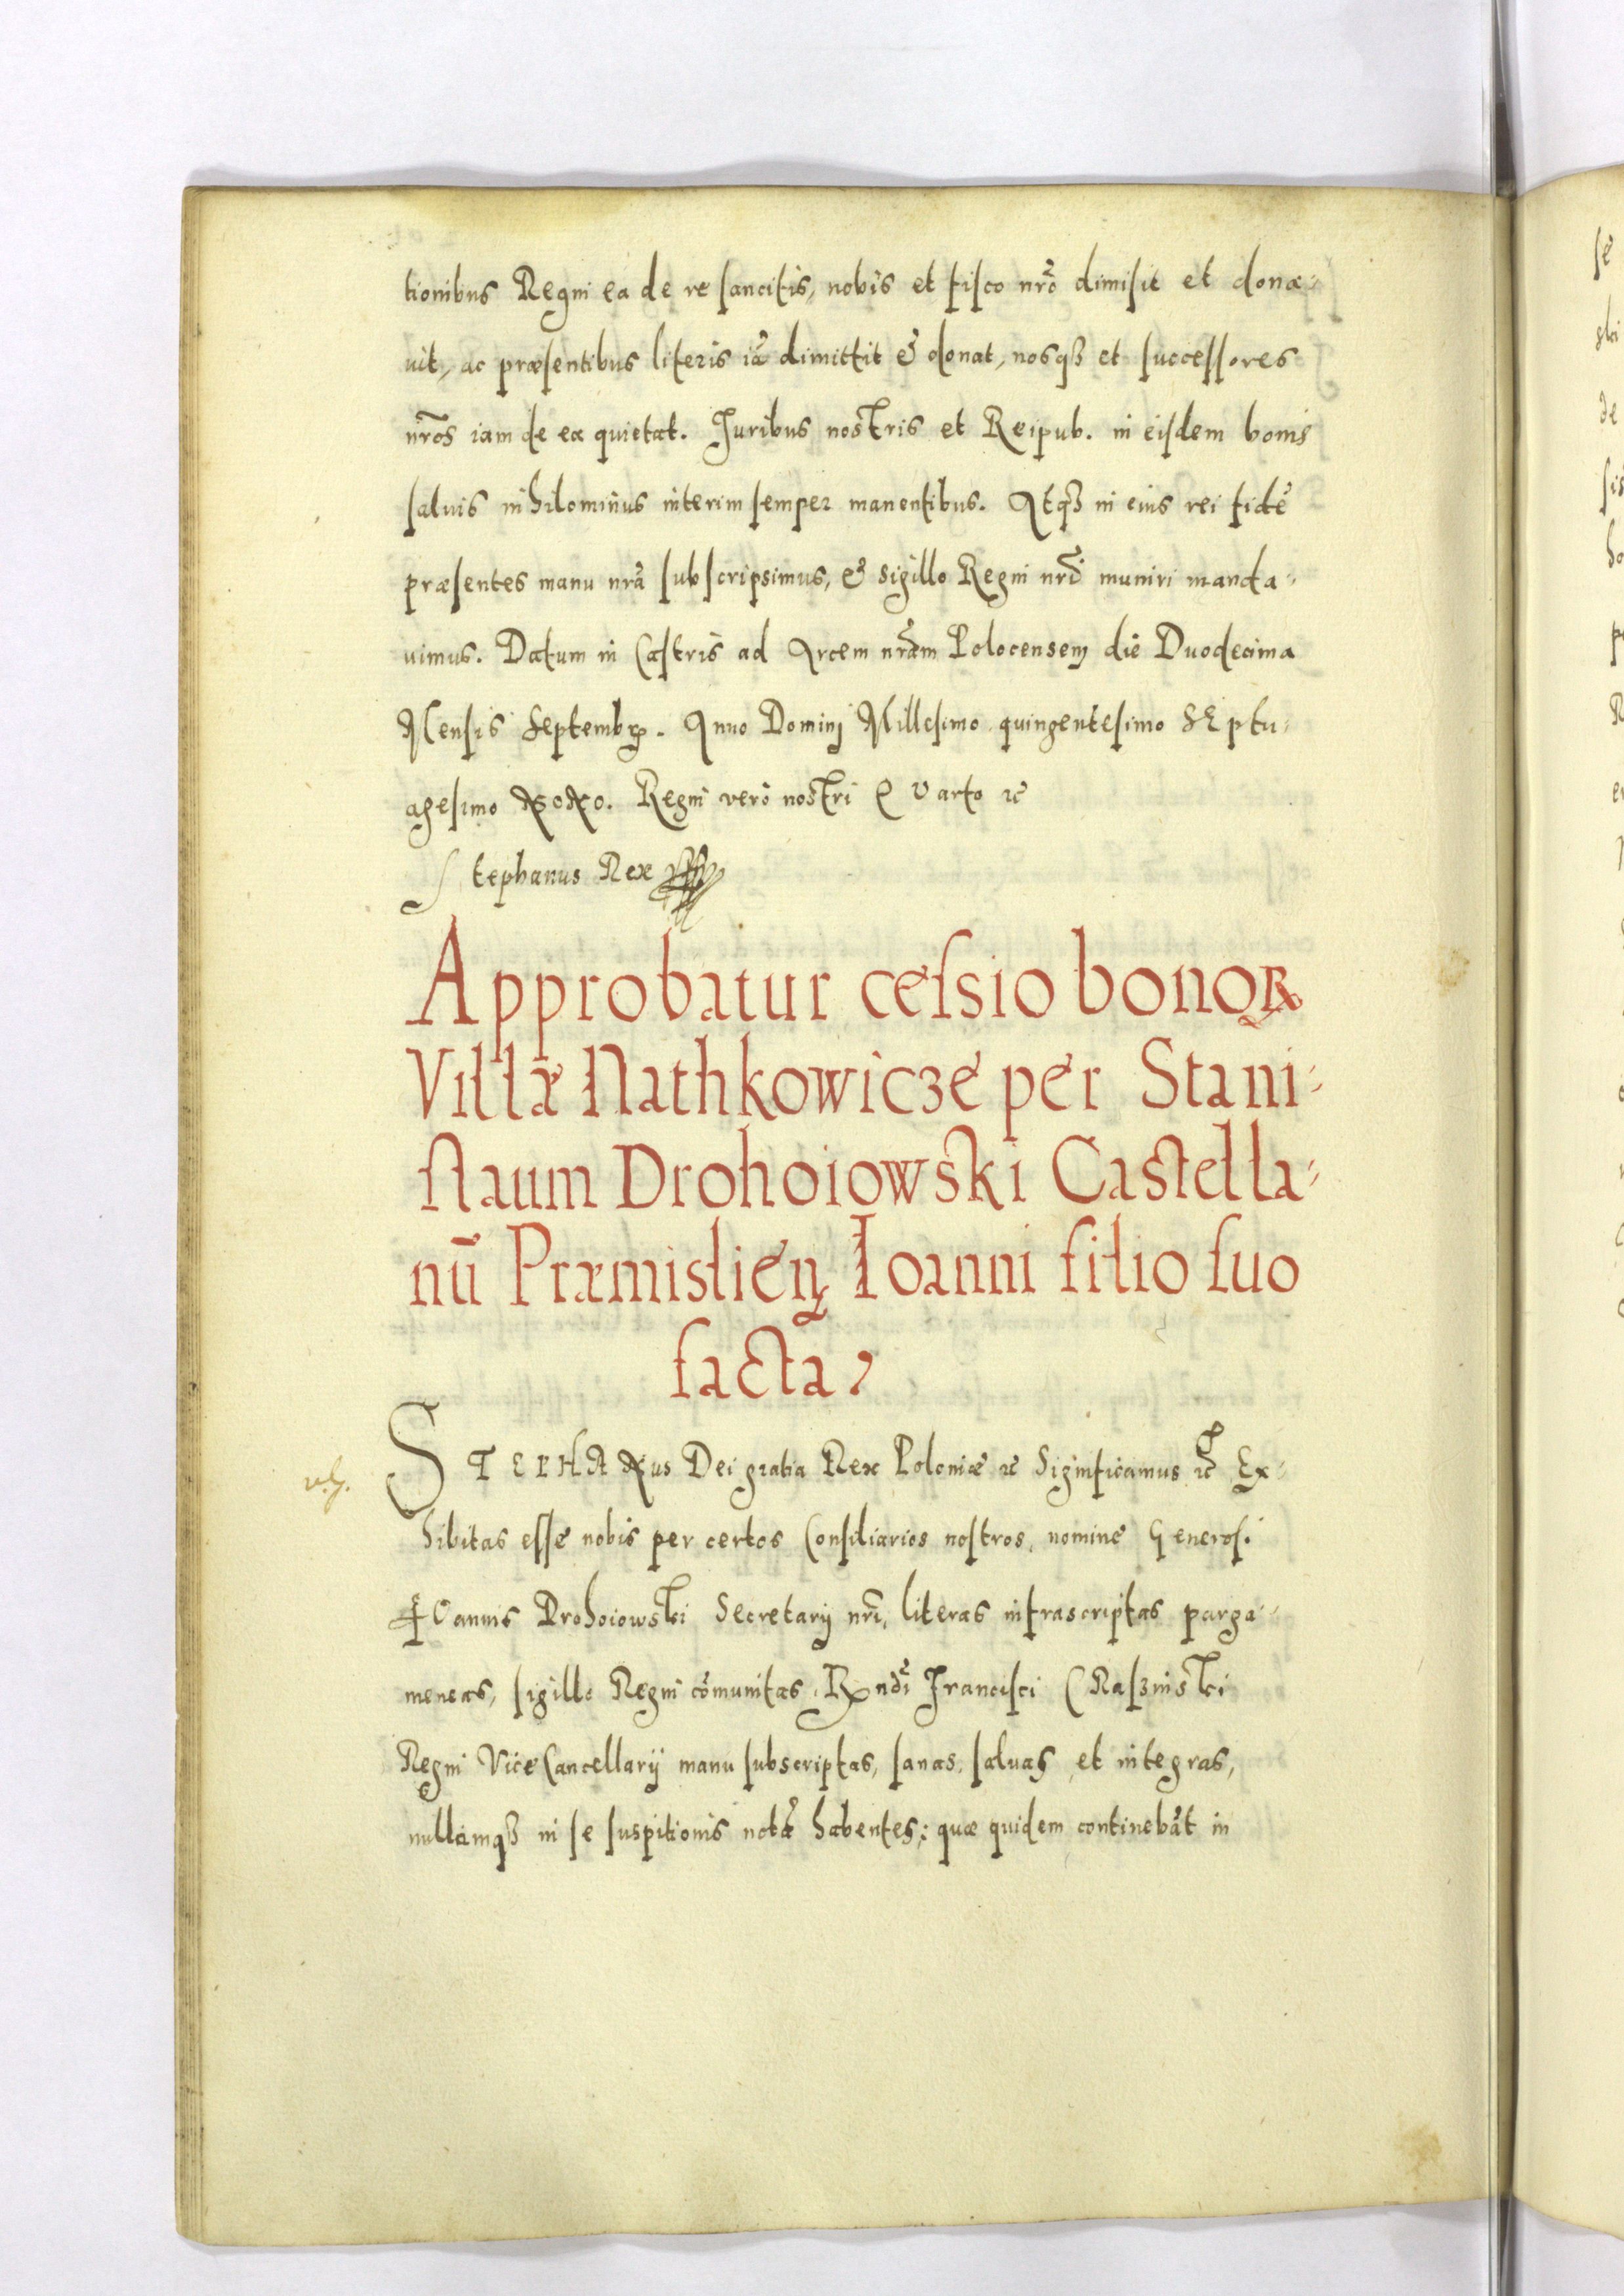 tionibus Regni ea de re sancitis, nobis et fisco nrõ dimisit et dona-
uit, ac præsentibus literis iã dimittit & donat, nosq₃ et successores
nr̃os iam de ea quietat. Juribus nostris et Reipub. in eisdem bonis
saluis nihilominus interim semper manentibus. Atq₃ in eius rei fidẽ
præsentes manu nrã subscripsimus, & sigillo Regni nrĩ muniri manda-
uimus. Datum in Castris ad Arcem nrãm Polocensem die Duodecima
Mensis Septembr̃. Anno Domini Millesimo quingentesimo SEptu-
agesimo NoNo. Regni verò nostri QVarto ꝛc̃
Stephanus Rex
Approbatur cessio bonoꝝ
Villæ Nathkowicze per Stani-
slaum Drohoiowski Castella-
nũ Præmislieñ Ioanni filio suo
facta,
v.g.
STEPHANus Dei gratia Rex Poloniæ ꝛc̃ Significamus ꝛc̃ Ex-
hibitas esse nobis per certos Consiliarios nostros, nomine Generosi
IOannis Drohoiowski Secretarij nrĩ, literas infrascriptas parga-
meneas, sigillo Regni cõmunitas, Rndĩ Francisci CRaszniski
Regni ViceCancellarij manu subscriptas, sanas, saluas, et integras,
nullamq₃ in se suspitionis notã habentes; quæ quidem continebãt in